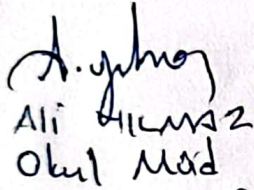 A. Yılmaz
Ali YILMAZ
Okul Müd